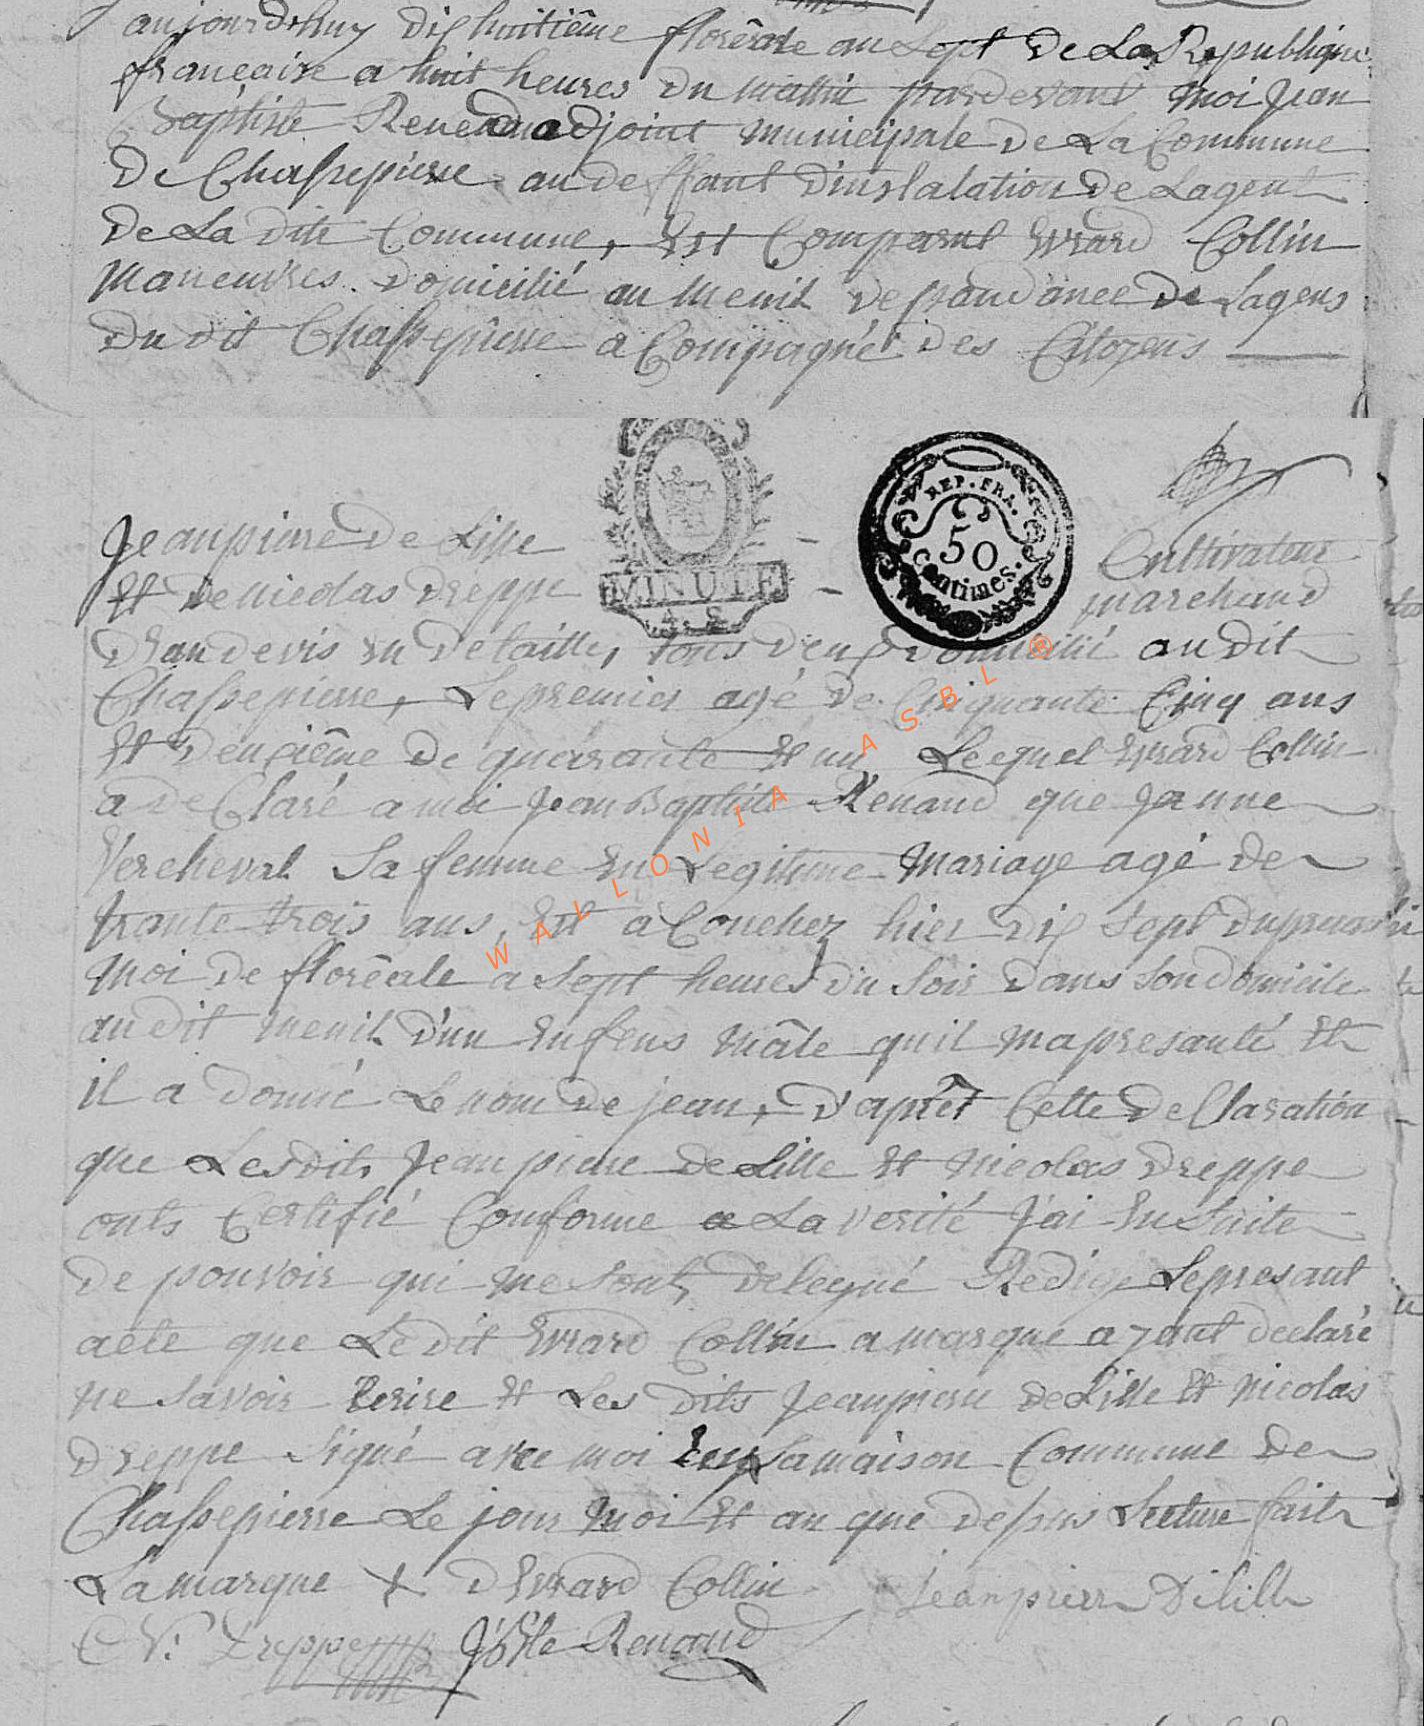 aujourdhuy dix huitiême florêale an Sept de La Republique
francaise a huit heures du mattin pardevant moi Jean
Baptiste Renaud adjoint municipale de La Commune
de Chassepierre au deffaut d'instalation de Lagent
de La dite Commune, Est Comparut Evrard Collin
maneuvres domicilié au menil depandance de Lagens
du dit Chassepierre a Compagné des Citoyens
Jeanpierre de Lille Cultivateur
MINUTE
A. S.
REP. FRA.
50
Centimes.
Et de nicolas dreppe marchand
en detaille, tous deux domicilié au dit
Chassepierre, Le premier agé de Cinquante Cinq ans
Et deuxiême de quarante Et un, Lequel Evrard Collin
a de Claré a moi Jean Baptiste Renaud que Janne
Vercheval Sa femme En Legitime Mariage agé de
trante trois ans, Est a Couchez hier dix Sept du
moi de florêale a Sept heures du Soir dans Son domicile
au dit menil d'un Enfens mâle quil mapresanté Et
il a donné Le nom de jean, d'aprêt Cette de Claration
que Lesdits Jean pierre de Lille Et nicolas dreppe
onts Certifié Conforme a La verité J'ai En Suite
de pouvoir qui me Sont delegué Redige Le presant
acte que Le dit Evrard Collin a marque ayant declaré
ne Savoir Ecrire Et Les dits Jeanpierre de Lille Et nicolas
dreppe Signé avec moi Lamaison Commune de
Chassepierre Le jour moi Et an que desus Lecture fait
La marque + d Evrard Collin Jeanpierre Dilille
N. Dreppe J Bte Renaud
WALLONIA ASBL ®